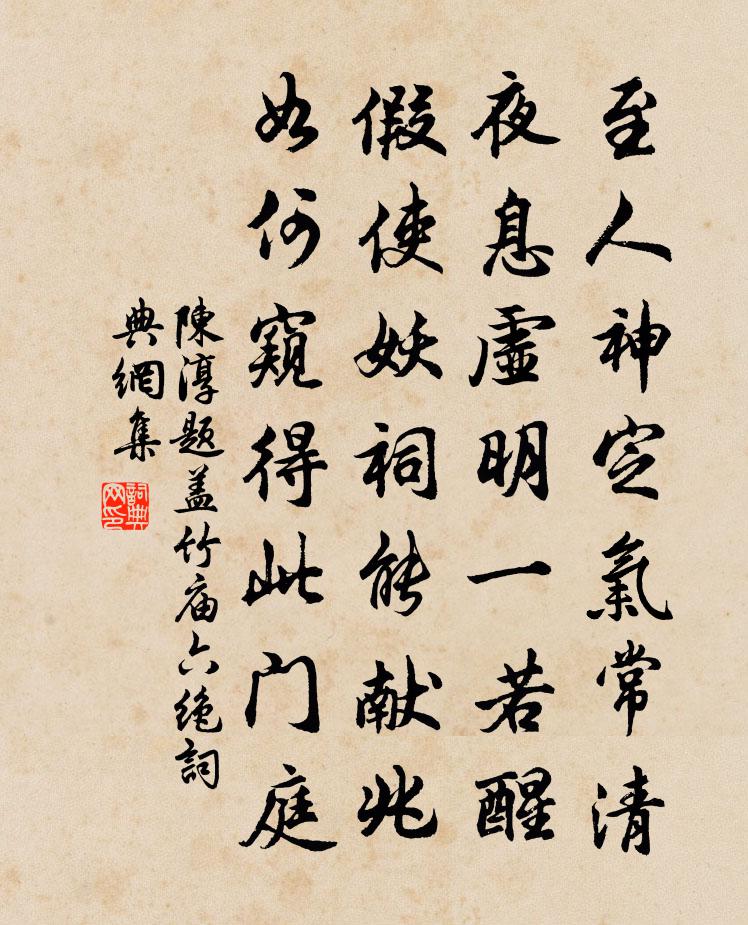 至人神定氣常清
夜息虛明一若醒
假使妖祠能献兆
如何窺得此门庭
陳淳題盖竹庙六绝詞
典網集
詞典
网印